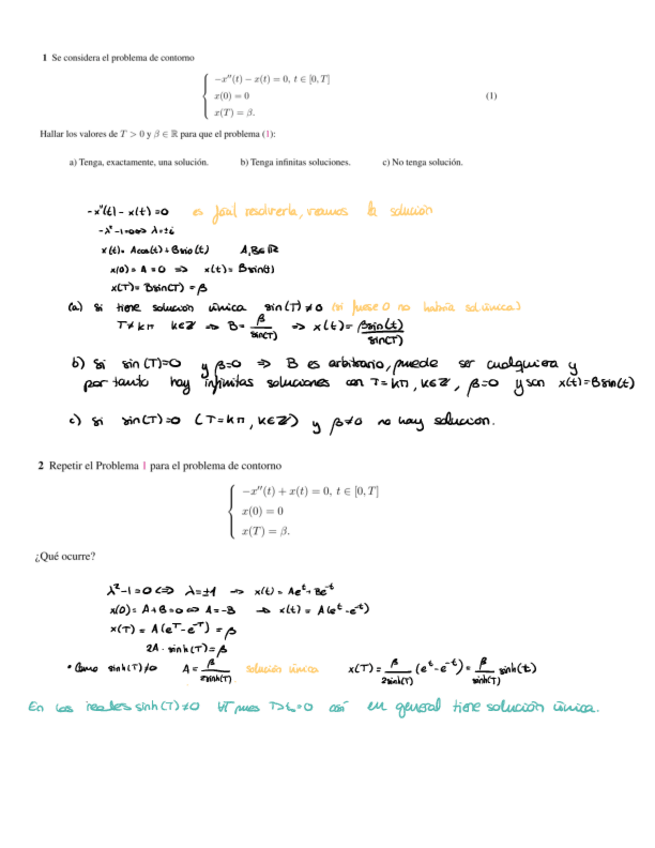 1 Se considera el problema de contorno
−x″(t) − x(t) = 0, t ∈ [0, T]
x(0) = 0
x(T) = β.
(1)
Hallar los valores de T > 0 y β ∈ ℝ para que el problema (1):
a) Tenga, exactamente, una solución. b) Tenga infinitas soluciones. c) No tenga solución.
-x″(t) - x(t) = 0 es fácil resolverla, veamos la solución
-λ² - 1 = 0 ⇔ λ = ±i
x(t) = Acos(t) + Bsin(t) A, B ∈ ℝ
x(0) = A = 0 ⇒ x(t) = Bsin(t)
x(T) = Bsin(T) = β
(a) Si tiene solución única sin(T) ≠ 0 (si fuese 0 no habría sol. única)
T ≠ kπ k∈ℤ ⇒ B = β/sin(T) ⇒ x(t) = βsin(t)/sin(T)
b) Si sin(T)=0 y β=0 ⇒ B es arbitrario, puede ser cualquiera y
por tanto hay infinitas soluciones con T=kπ, k∈ℤ, β=0 y son x(t)=Bsin(t)
c) Si sin(T)=0 (T=kπ, k∈ℤ) y β≠0 no hay solucion.
2 Repetir el Problema 1 para el problema de contorno
−x″(t) + x(t) = 0, t ∈ [0, T]
x(0) = 0
x(T) = β.
¿Qué ocurre?
λ² - 1 = 0 ⇔ λ = ±1 → x(t) = Ae^t + Be^-t
x(0) = A + B = 0 ⇔ A = -B → x(t) = A(e^t - e^-t)
x(T) = A(e^T - e^-T) = β
2A · sinh(T) = β
• Como sinh(T) ≠ 0 A = β/2sinh(T) solución única x(T) = β/2sinh(T) (e^t - e^-t) = β/sinh(T) sinh(t)
En los reales sinh(T) ≠ 0 ∀T pues T>0 así en general tiene solución única.